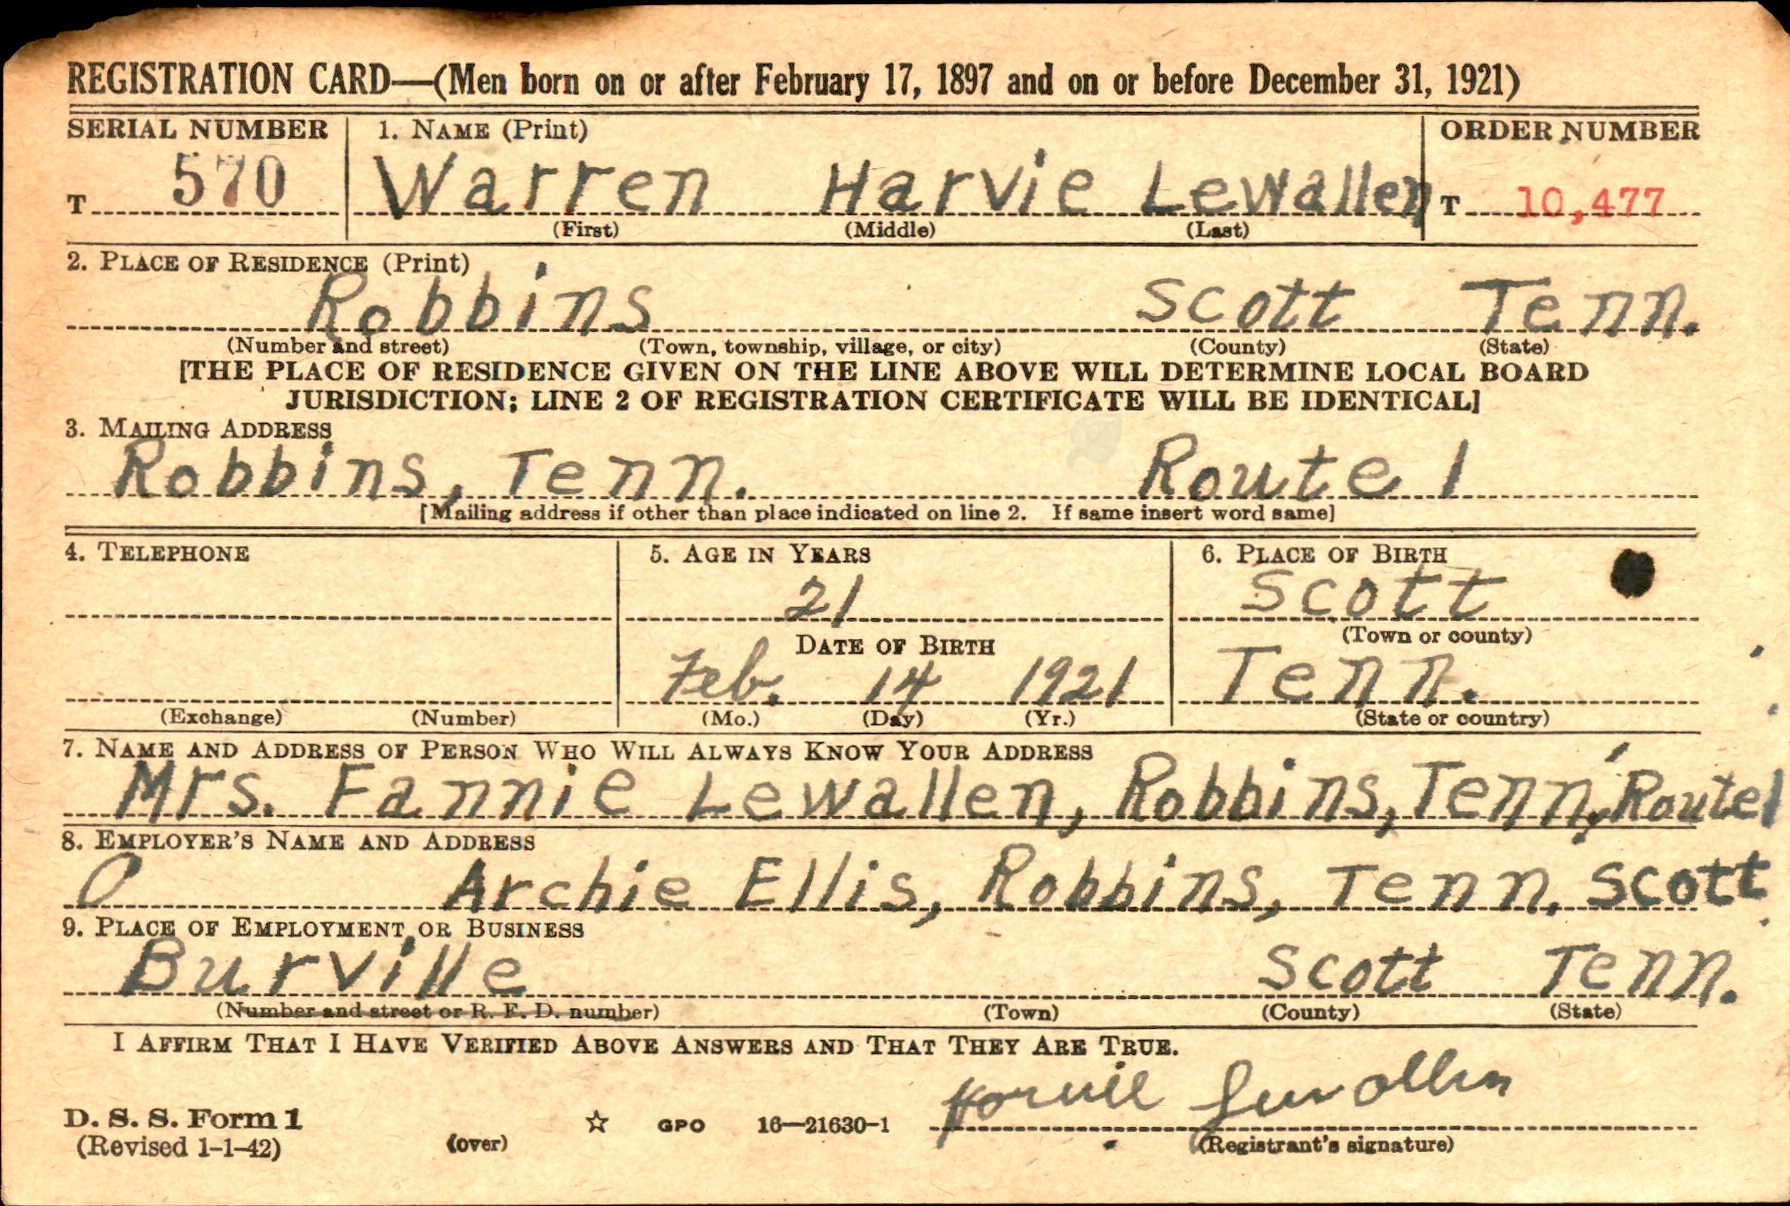 REGISTRATION CARD—(Men born on or after February 17, 1897 and on or before December 31, 1921)
SERIAL NUMBER 1. NAME (Print) ORDER NUMBER
T 570 Warren Harvie Lewallen T 10,477
(First) (Middle) (Last)
2. PLACE OF RESIDENCE (Print)
Robbins Scott Tenn.
(Number and street) (Town, township, village, or city) (County) (State)
[THE PLACE OF RESIDENCE GIVEN ON THE LINE ABOVE WILL DETERMINE LOCAL BOARD
JURISDICTION; LINE 2 OF REGISTRATION CERTIFICATE WILL BE IDENTICAL]
3. MAILING ADDRESS
Robbins, Tenn. Route 1
[Mailing address if other than place indicated on line 2. If same insert word same]
4. TELEPHONE 5. AGE IN YEARS 6. PLACE OF BIRTH
21 Scott
DATE OF BIRTH (Town or county)
Feb. 14 1921 Tenn.
(Exchange) (Number) (Mo.) (Day) (Yr.) (State or country)
7. NAME AND ADDRESS OF PERSON WHO WILL ALWAYS KNOW YOUR ADDRESS
Mrs. Fannie Lewallen, Robbins, Tenn, Route 1
8. EMPLOYER'S NAME AND ADDRESS
0 Archie Ellis, Robbins, Tenn. Scott
9. PLACE OF EMPLOYMENT OR BUSINESS
Burville Scott Tenn.
(Number and street or R. F. D. number) (Town) (County) (State)
I AFFIRM THAT I HAVE VERIFIED ABOVE ANSWERS AND THAT THEY ARE TRUE.
Harvie Lewallen
D. S. S. Form 1 GPO 16—21630-1
(Revised 1-1-42) (over) (Registrant's signature)